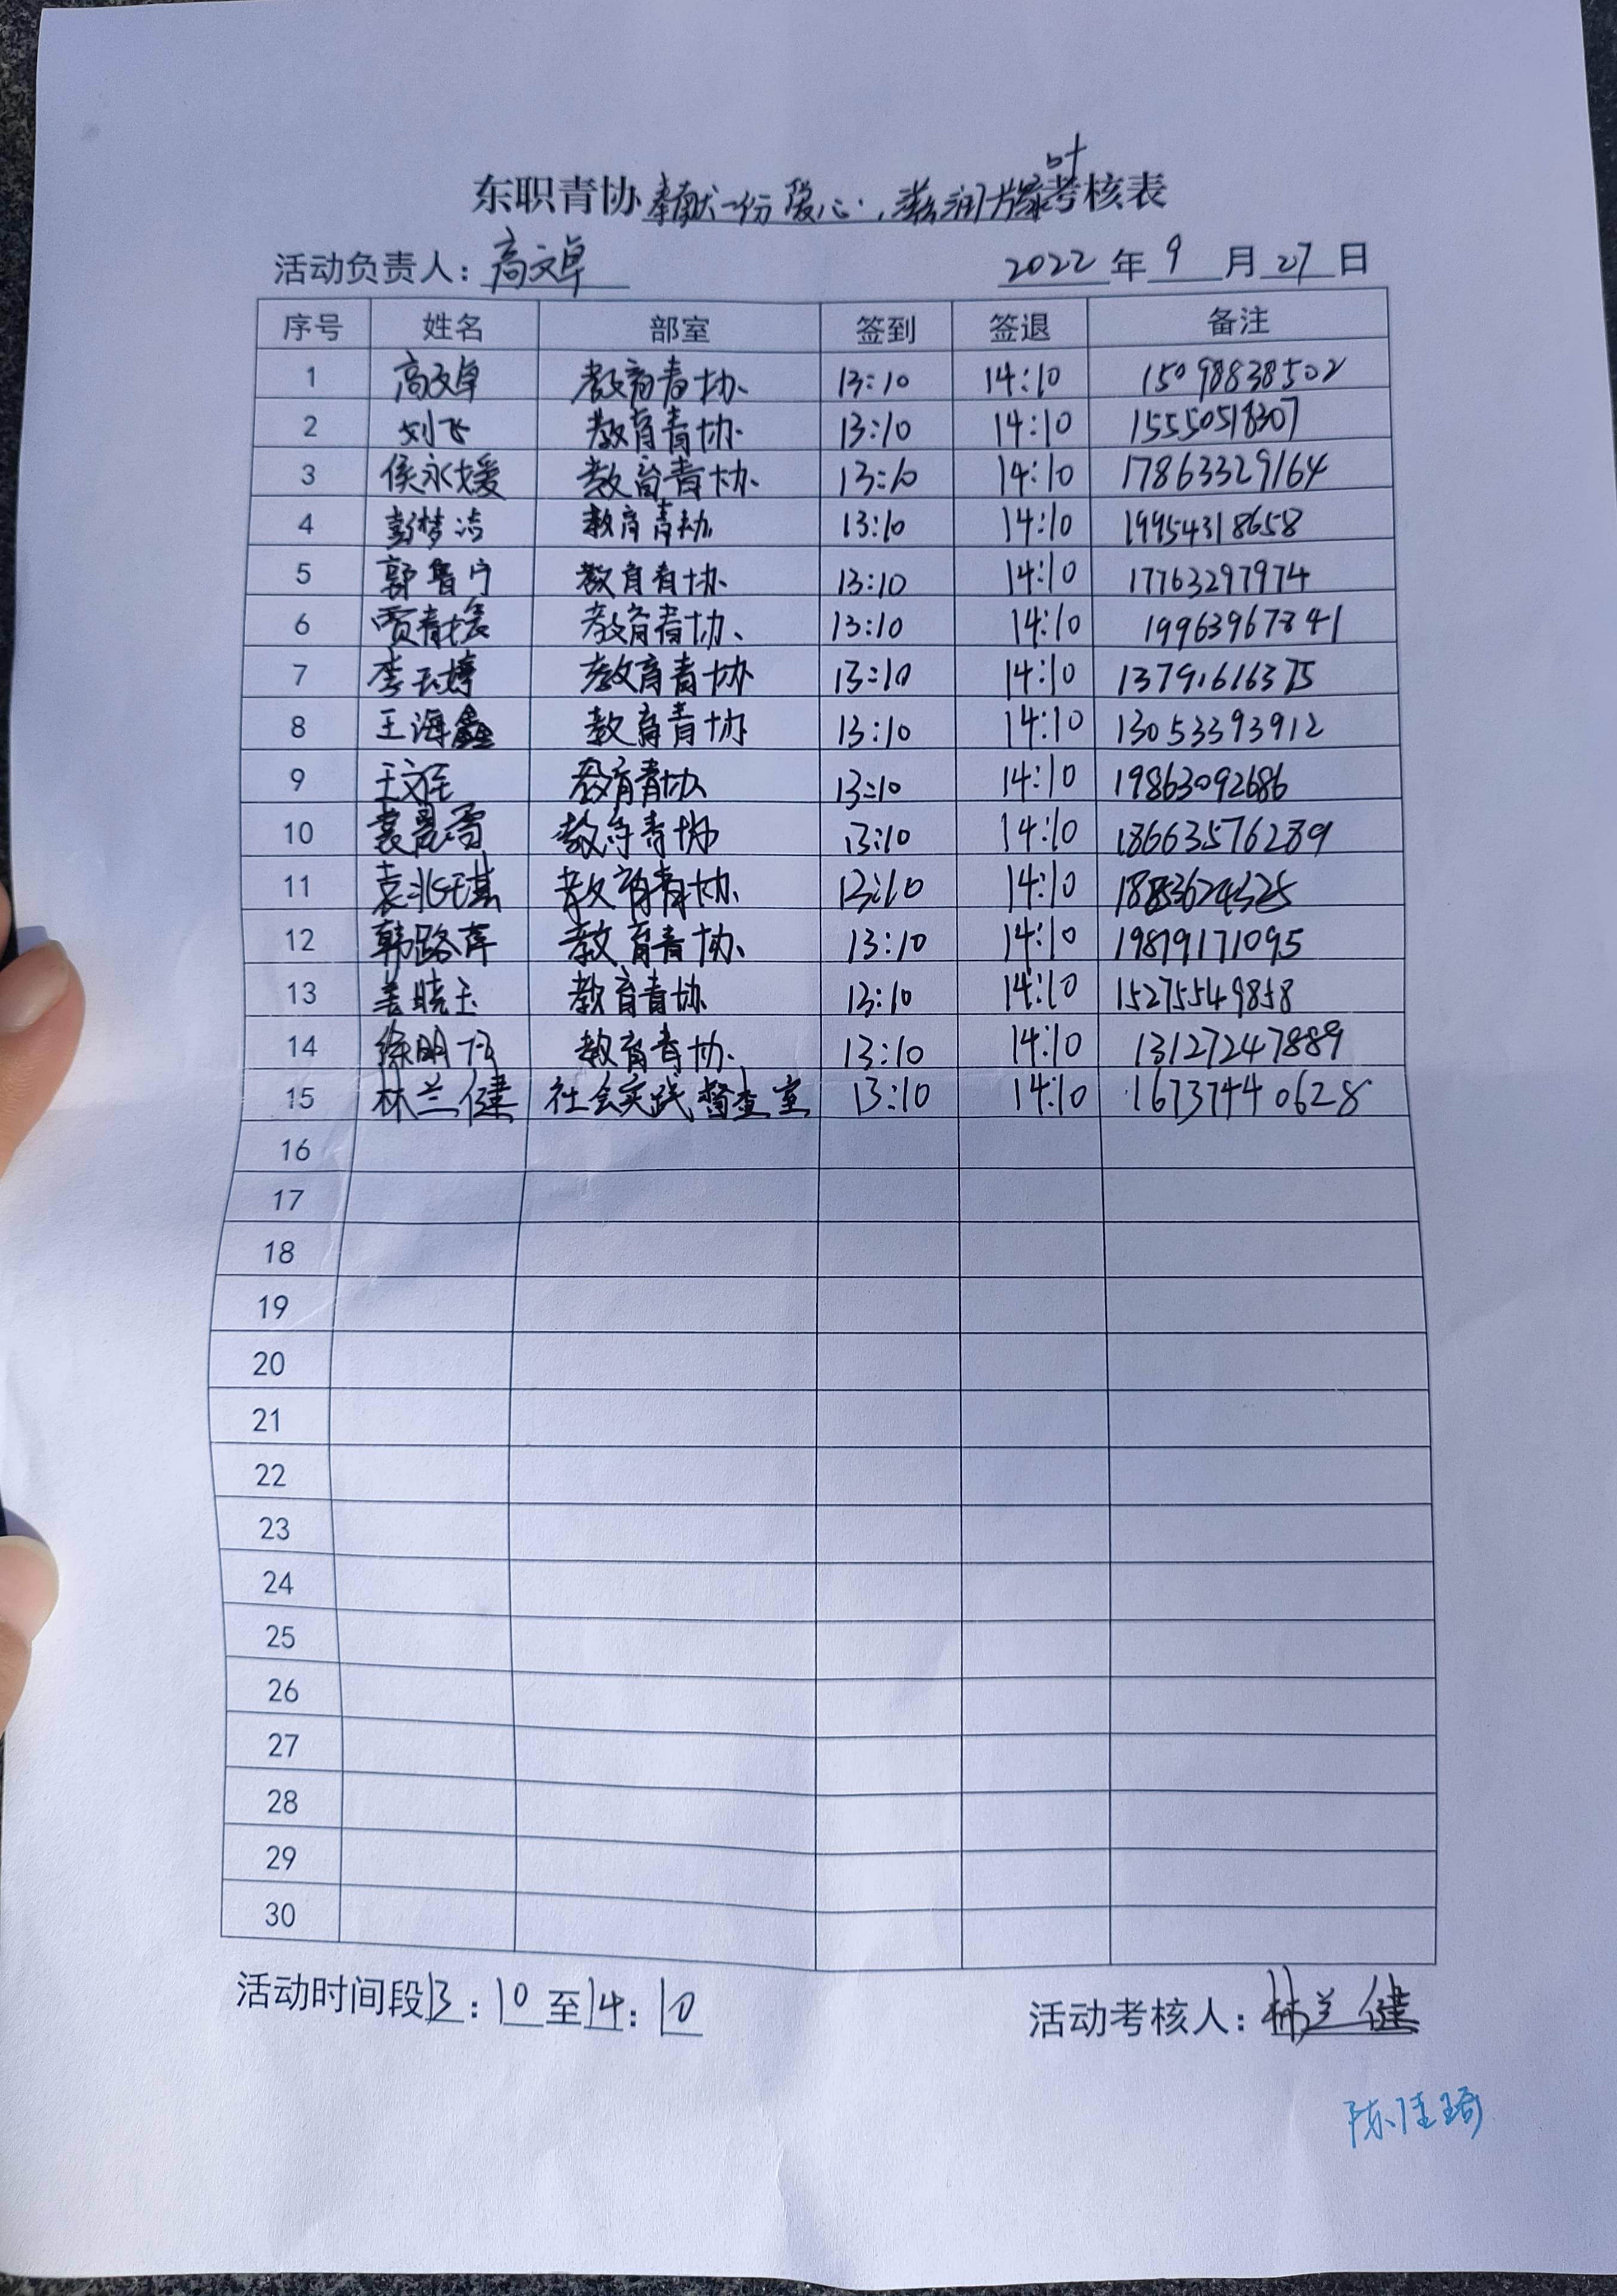 东职青协奉献一份爱心,滋润片绿叶考核表
活动负责人:高文卓 2022年9月27日
序号 姓名 部室 签到 签退 备注
1 高文卓 教育青协 13:10 14:10 15098838502
2 刘飞 教育青协 13:10 14:10 15550518307
3 侯永媛 教育青协 13:10 14:10 17863329164
4 彭梦洁 教育青协 13:10 14:10 19954318658
5 郭鲁宁 教育青协 13:10 14:10 17763297974
6 贾青媛 教育青协 13:10 14:10 19963967841
7 李玉婷 教育青协 13:10 14:10 13791616375
8 王海鑫 教育青协 13:10 14:10 13053393912
9 教育青协 13:10 14:10 19863092686
10 袁晨雪 教育青协 13:10 14:10 18663576289
11 袁兆琪 教育青协 13:10 14:10
12 韩路萍 教育青协 13:10 14:10 19819171095
13 姜晓玉 教育青协 13:10 14:10 15275549858
14 教育青协 13:10 14:10 13127247889
15 林兰健 社会实践督查室 13:10 14:10 16737440628
16
17
18
19
20
21
22
23
24
25
26
27
28
29
30
活动时间段13:10至14:10 活动考核人:林兰健
陈佳琦